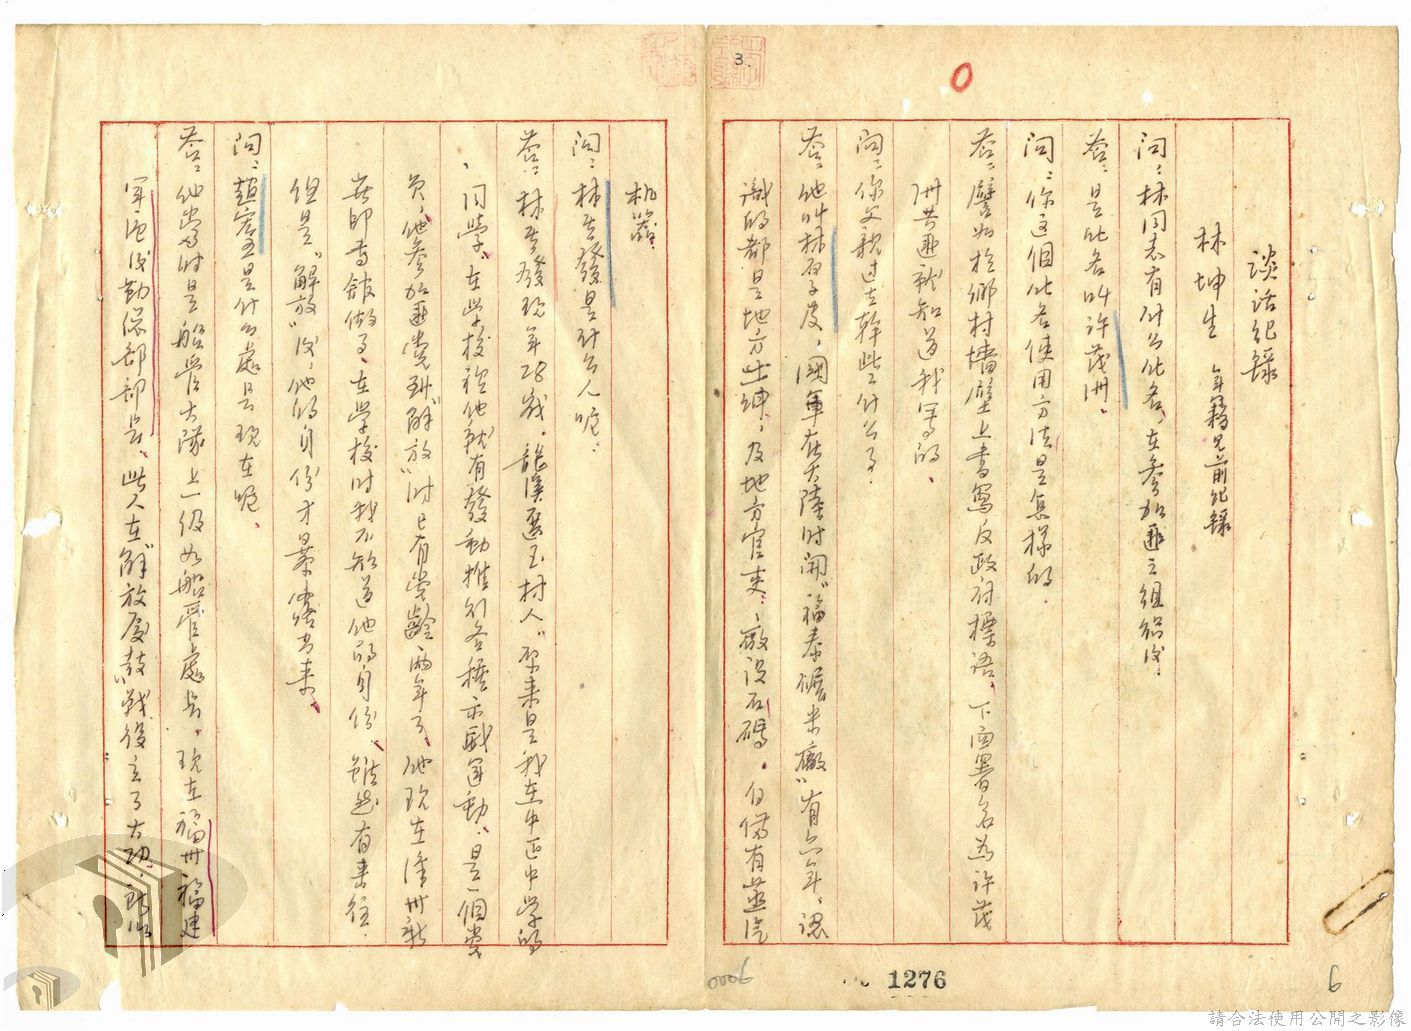 談話紀錄
林坤生 年籍見前紀錄
問：林同志有什么化名，在參加匪之組織後．
答：是化名叫許茂洲．
問：你這個化名使用方法是怎樣的．
答：譬如於鄉村墻壁上書寫反政府標語，下面署名為許茂
洲共匪就知道我寫的
問：你父親过去幹些什么了．
答：他叫林石子皮，國軍在大陸时開“福泰碾米廠”有六年，認
識的都是地方士紳，及地方官吏，廠設石碼，自備有蒸汽
机器．
問：林吾發是什么人呢．
答：林吾發現年28歲，龍溪 玉村人，原來是我在中正中學的
同學，在學校裡他就有發動推行各種示威運動，是一個黨
員，他參加匪党到“解放”时已有党齡兩年了，他現在漳州新
 印書館做事，在學校时我不知道他的身份，雖然有来往．
但是“解放”後，他的身份才暴露出来．
問：趙官五是什么處長現在呢．
答：他當时是船管大隊上一級如船管處長，現在福州福建
軍區後勤保部部長，此人在解放廈鼓“戰後立了大功，
3.
0006
1276
6
請合法使用公開之影像